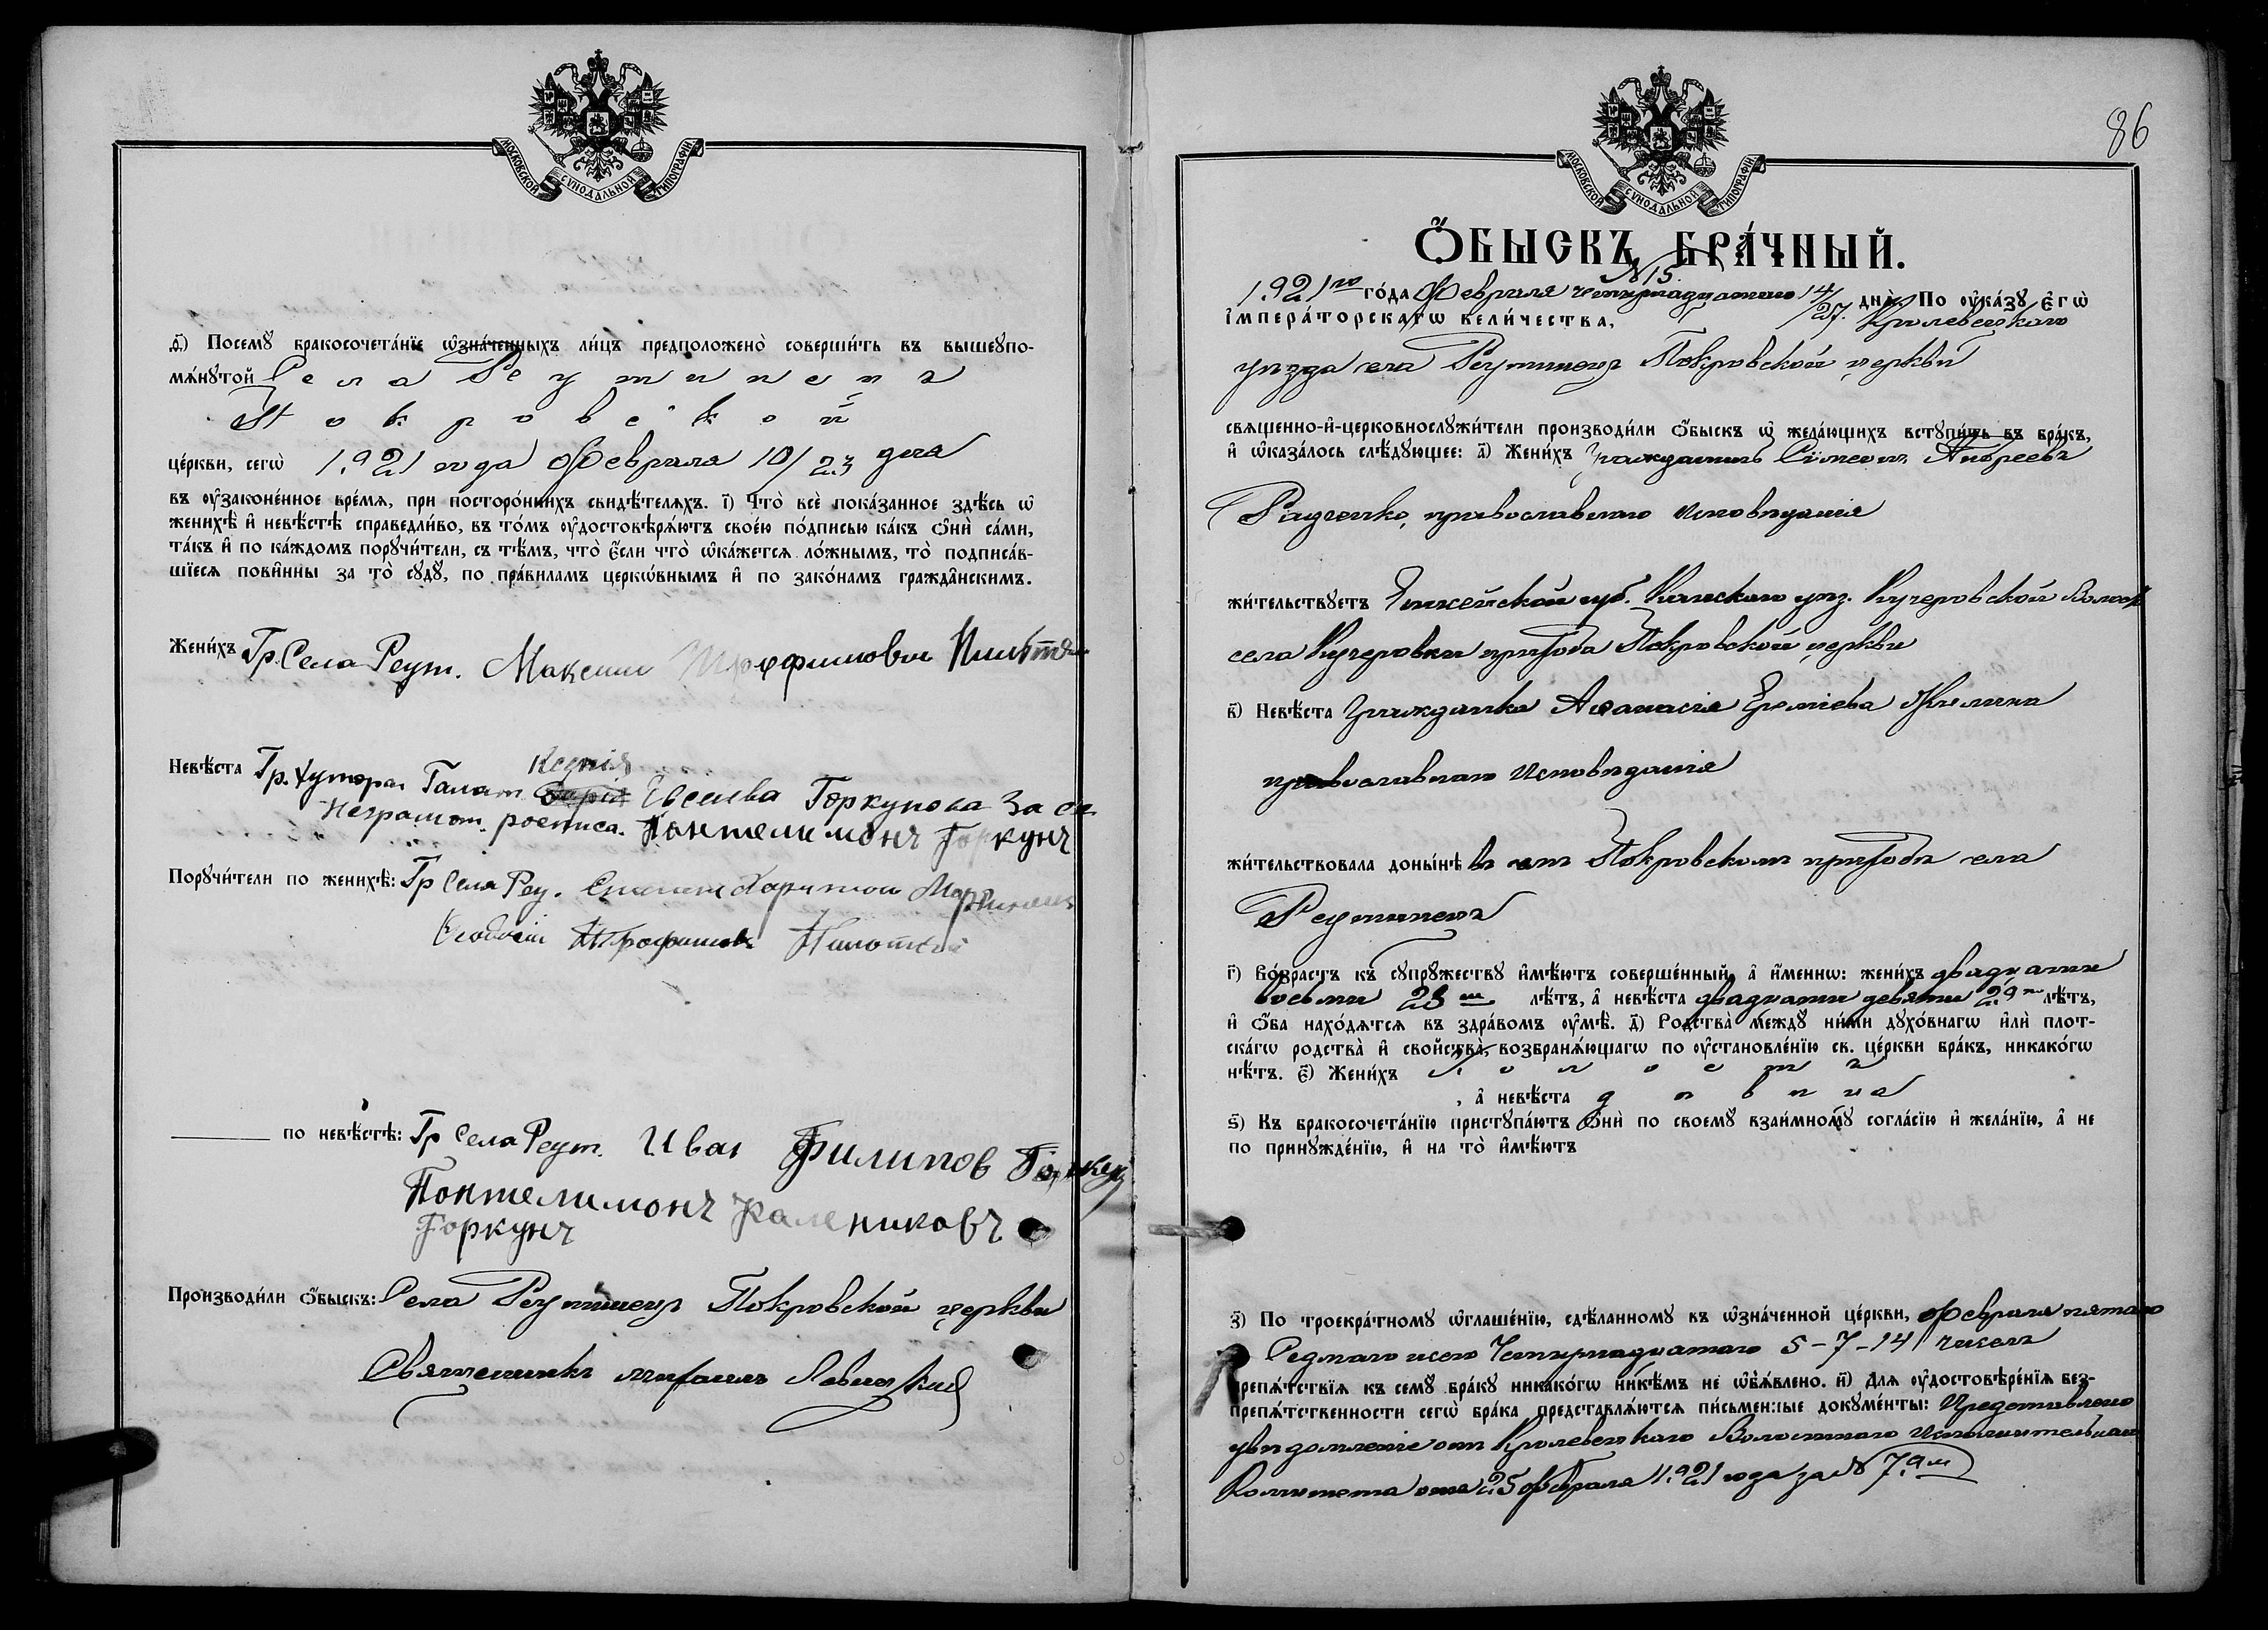 МОСКОВСКОЙ СѴНОДАЛЬНОЙ ТИПОГРАФІИ
д҃) Посемꙋ̀ бракосочета́нїе ѡзна́ченныхъ ли́цъ предположено̀ соверши́ть въ вышеꙋпо-
мѧ́нꙋтой Села Реутинецъ
Покровской
це́ркви, сегѡ̀ 1921 года Февраля 10/23 дня
въ ᲂу҆законе́нное вре́мѧ, при посторо́ннихъ свидѣ́телѧхъ. і҃) Что̀ всѐ пока́занное здѣ́сь ѡ҆
женихѣ̀ и҆ невѣ́стѣ справедли́во, въ то́мъ ᲂу҆достовѣрѧ́ютъ свое́ю по́дписью ка́къ ѻ҆нѝ са́ми,
та́къ и҆ по ка́ждомъ порꙋчи́тели, съ тѣ́мъ, что̀ є҆́сли что̀ ѡ҆ка́жетсѧ ло́жнымъ, то̀ подписа́в-
шїесѧ пови́нны за то̀ сꙋдꙋ̀, по пра́виламъ церко́внымъ и҆ по зако́намъ гражда́нскимъ.
Жени́хъ Гр. Села Реут. Максим
Невѣ́ста Гр. Хутора Галат. Ксенія Евсеева Горкунова За ея
Неграмот. росписа. Пантелимонъ Горкунъ
Порꙋчи́тели по женихѣ̀: Гр Села Реу. Харитон
Трофимов
по невѣ́стѣ: Гр Села Реут. Иван Филипов Горкун
Понтелимонъ Калениковъ
Горкунъ
Производи́ли ѻ҆́быскъ: Села Реутинецъ Покровской церкви
Священникъ Михаилъ Левицкий
86
МОСКОВСКОЙ СѴНОДАЛЬНОЙ ТИПОГРАФІИ
Ѻ҆́БЫСКЪ БРА́ЧНЫЙ.
№ 15.
1921го го́да Февраля четырнадцатаго 14/27. днѧ̀. По ᲂу҆ка́зꙋ Є҆гѡ̀
І҆мпера́торскагѡ вели́чества, Кролевецкаго
уѣзда села Реутинецъ Покровской церкви
свѧщенно-и҆-церковнослꙋжи́тели производи́ли ѻ҆́быскъ ѡ҆ жела́ющихъ встꙋпи́ть въ бра́къ,
и҆ ѡ҆каза́лось слѣ́дꙋющее: а҃) Жени́хъ Гражданинъ Сѵмеонъ Андреевъ
Радченко, православнаго исповѣданія
жи́тельствꙋетъ Енисейской губ. Канскаго уѣз. Кучеровской Волости
села Кучеровки прихода Покровской церкви
в҃) Невѣ́ста Гражданка Аѳанасія Еремѣева
православнаго Исповѣданія
жи́тельствовала доны́нѣ въ семъ Покровскомъ приходѣ села
Реутинецъ
г҃) Во́зрастъ къ сꙋпрꙋ́жествꙋ и҆мѣ́ютъ соверше́нный, а҆ и҆́меннѡ: жени́хъ двадцати
восьми 28 ми лѣ́тъ, а҆ невѣ́ста двадцати девяти 29ти лѣ́тъ,
и҆ ѻ҆́ба нахо́дѧтсѧ въ здра́вомъ ᲂу҆мѣ̀. д҃) Родства̀ междꙋ̀ ни́ми дꙋхо́внагѡ и҆лѝ плот-
ска́гѡ родства̀ и҆ свойства̀, возбранѧ́ющагѡ по ᲂу҆становле́нїю св. це́ркви бра́къ, никако́гѡ
нѣ́тъ. є҃) Жени́хъ холостъ
, а҆ невѣ́ста дѣвица
ѕ҃) Къ бракосочета́нїю пристꙋпа́ютъ ѻ҆нѝ по своемꙋ̀ взаи́мномꙋ согла́сїю и҆ жела́нїю, а҆ не
по принꙋжде́нїю, и҆ на то̀ и҆мѣ́ютъ
з҃) По троекра́тномꙋ ѡ҆глаше́нїю, сдѣ́ланномꙋ въ ѡ҆зна́ченной це́ркви, Февраля пятаго
Седмаго и сего Четырнадцатаго 5-7-14 чиселъ
препѧ́тствїѧ къ семꙋ̀ бра́кꙋ никако́гѡ ни́кѣмъ не ѡ҆б̾ѧ́влено. и҃) Длѧ ᲂу҆достовѣре́нїѧ без-
препѧ́тственности сегѡ̀ бра́ка представлѧ́ютсѧ пи́сьменные докꙋме́нты: Представлено
увѣдомленіе отъ Кролевецкаго Волостнаго Исполнительнаго
Комитета отъ 25 февраля 1921 года за № 79 м